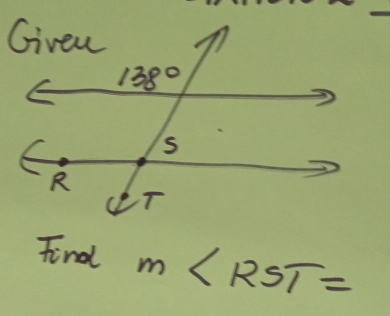 Given
138°
S
R
T
Find m < RST =